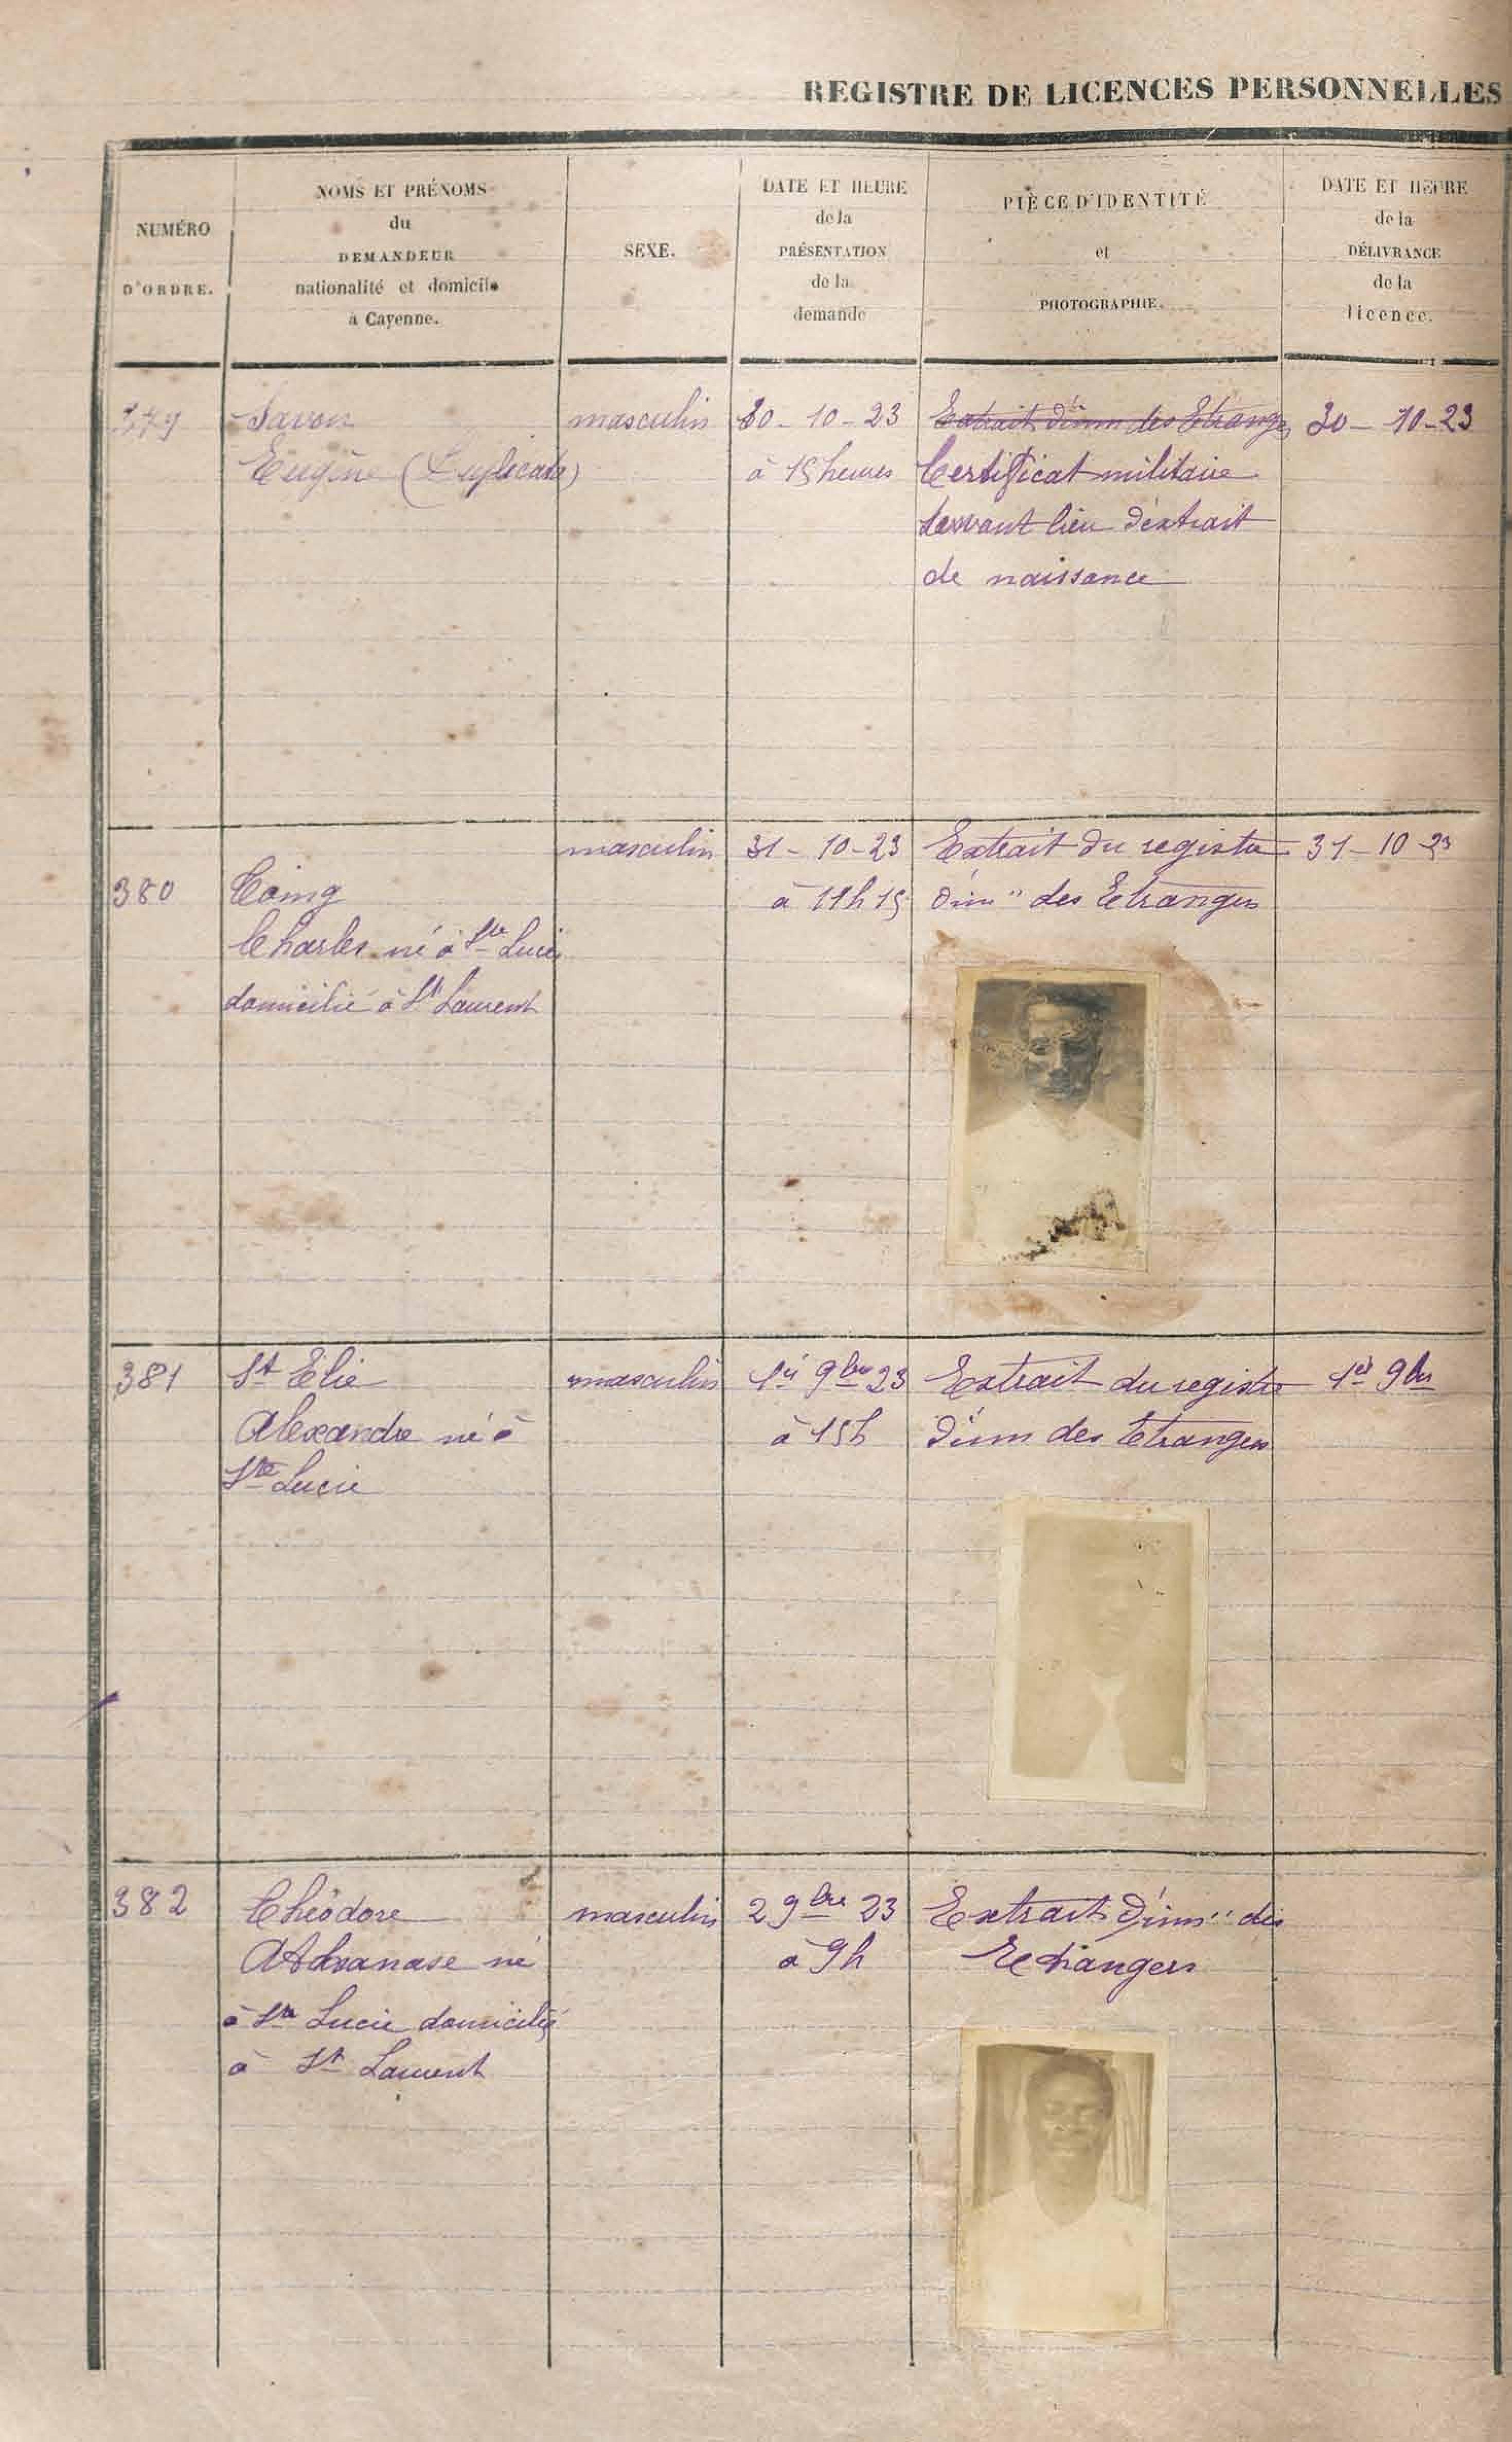 REGISTRE DE LICENCES PERSONNELLES
NUMÉRO
D'ORDRE.
NOMS ET PRÉNOMS
du
DEMANDEUR
nationalité et domicile
à Cayenne.
SEXE.
DATE ET HEURE
de la
PRÉSENTATION
de la
demande
PIÈCE D'IDENTITÉ
et
PHOTOGRAPHIE.
DATE ET HEURE
de la
DÉLIVRANCE
de la
licence.
379
Savon
Eugène (Duplicata)
masculin
30 - 10 - 23
à 15 heures
Extrait d'imm des Etrangers
Certificat militaire
devant lieu d'extrait
de naissance
30 - 10 - 23
380
Coing
Charles né à Ste Lucie
domicilié à St Laurent
masculin
31 - 10 - 23
à 11h 15
Extrait du registre
d'im" des Etrangers
31 - 10 23
381
St Elie
Alexandre né à
Ste Lucie
masculin
1er 9bre 23
à 15h
Extrait du registre
d'imm des Etrangers
1er 9bre
382
Théodore
Athanase né
à Ste Lucie domicilié
à St Laurent
masculin
2 9bre 23
à 9h
Extrait d'imm" des
Etrangers